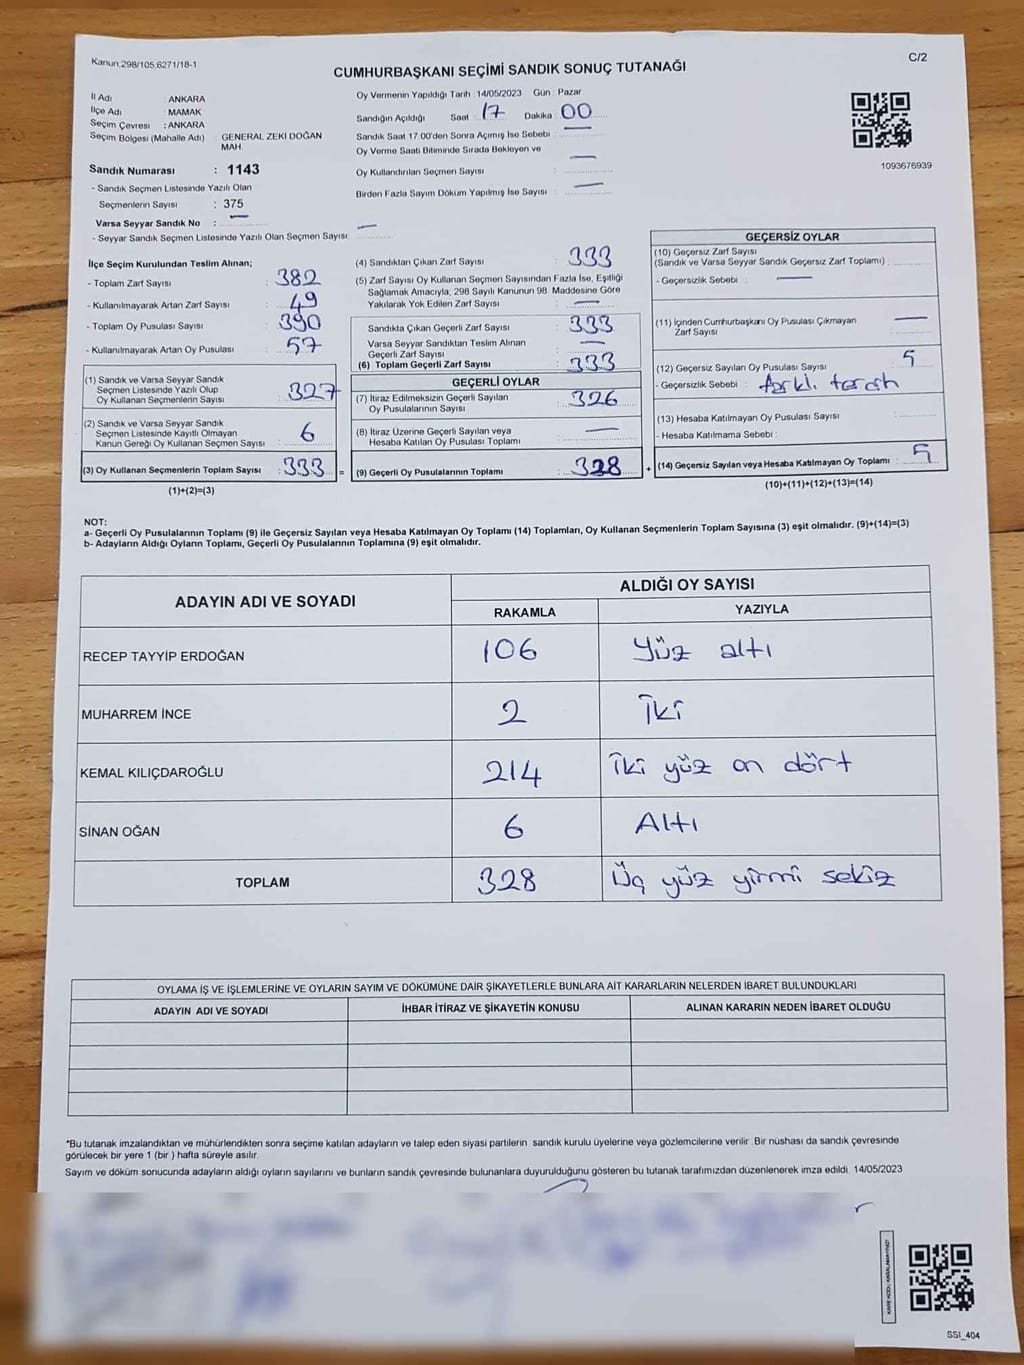 Kanun,298/105,6271/18-1
C/2
CUMHURBAŞKANI SEÇİMİ SANDIK SONUÇ TUTANAĞI
İl Adı : ANKARA
İlçe Adı : MAMAK
Seçim Çevresi : ANKARA
Seçim Bölgesi (Mahalle Adı) : GENERAL ZEKİ DOĞAN
MAH.
Sandık Numarası : 1143
- Sandık Seçmen Listesinde Yazılı Olan
Seçmenlerin Sayısı : 375
Varsa Seyyar Sandık No : —
- Seyyar Sandık Seçmen Listesinde Yazılı Olan Seçmen Sayısı: —
Oy Vermenin Yapıldığı Tarih : 14/05/2023 Gün : Pazar
Sandığın Açıldığı Saat : 17 Dakika : 00
Sandık Saat 17:00'den Sonra Açımış İse Sebebi : —
Oy Verme Saati Bitiminde Sırada Bekleyen ve
Oy Kullandırılan Seçmen Sayısı : —
Birden Fazla Sayım Döküm Yapılmış İse Sayısı : —
1093676939
İlçe Seçim Kurulundan Teslim Alınan;
- Toplam Zarf Sayısı : 382
- Kullanılmayarak Artan Zarf Sayısı : 49
- Toplam Oy Pusulası Sayısı : 390
- Kullanılmayarak Artan Oy Pusulası : 57
(1) Sandık ve Varsa Seyyar Sandık
Seçmen Listesinde Yazılı Olup
Oy Kullanan Seçmenlerin Sayısı : 327
(2) Sandık ve Varsa Seyyar Sandık
Seçmen Listesinde Kayıtlı Olmayan
Kanun Gereği Oy Kullanan Seçmen Sayısı : 6
(3) Oy Kullanan Seçmenlerin Toplam Sayısı : 333 =
(1)+(2)=(3)
(4) Sandıktan Çıkan Zarf Sayısı : 333
(5) Zarf Sayısı Oy Kullanan Seçmen Sayısından Fazla İse, Eşitliği
Sağlamak Amacıyla, 298 Sayılı Kanunun 98. Maddesine Göre
Yakılarak Yok Edilen Zarf Sayısı : —
Sandıkta Çıkan Geçerli Zarf Sayısı : 333
Varsa Seyyar Sandıktan Teslim Alınan
Geçerli Zarf Sayısı : —
(6) Toplam Geçerli Zarf Sayısı : 333
GEÇERLİ OYLAR
(7) İtiraz Edilmeksizin Geçerli Sayılan
Oy Pusulalarının Sayısı : 326
(8) İtiraz Üzerine Geçerli Sayılan veya
Hesaba Katılan Oy Pusulası Toplamı : —
(9) Geçerli Oy Pusulalarının Toplamı : 328 +
GEÇERSİZ OYLAR
(10) Geçersiz Zarf Sayısı
(Sandık ve Varsa Seyyar Sandık Geçersiz Zarf Toplamı) :
- Geçersizlik Sebebi : —
(11) İçinden Cumhurbaşkanı Oy Pusulası Çıkmayan
Zarf Sayısı : —
(12) Geçersiz Sayılan Oy Pusulası Sayısı : 5
- Geçersizlik Sebebi : farklı tercih
(13) Hesaba Katılmayan Oy Pusulası Sayısı :
- Hesaba Katılmama Sebebi :
(14) Geçersiz Sayılan veya Hesaba Katılmayan Oy Toplamı : 5
(10)+(11)+(12)+(13)=(14)
NOT:
a- Geçerli Oy Pusulalarının Toplamı (9) ile Geçersiz Sayılan veya Hesaba Katılmayan Oy Toplamı (14) Toplamları, Oy Kullanan Seçmenlerin Toplam Sayısına (3) eşit olmalıdır. (9)+(14)=(3)
b- Adayların Aldığı Oyların Toplamı, Geçerli Oy Pusulalarının Toplamına (9) eşit olmalıdır.
ADAYIN ADI VE SOYADI ALDIĞI OY SAYISI
RAKAMLA YAZIYLA
RECEP TAYYİP ERDOĞAN 106 Yüz altı
MUHARREM İNCE 2 İki
KEMAL KILIÇDAROĞLU 214 İki yüz on dört
SİNAN OĞAN 6 Altı
TOPLAM 328 Üç yüz yirmi sekiz
OYLAMA İŞ VE İŞLEMLERİNE VE OYLARIN SAYIM VE DÖKÜMÜNE DAİR ŞİKAYETLERLE BUNLARA AİT KARARLARIN NELERDEN İBARET BULUNDUKLARI
ADAYIN ADI VE SOYADI İHBAR İTİRAZ VE ŞİKAYETİN KONUSU ALINAN KARARIN NEDEN İBARET OLDUĞU
*Bu tutanak imzalandıktan ve mühürlendikten sonra seçime katılan adayların ve talep eden siyasi partilerin sandık kurulu üyelerine veya gözlemcilerine verilir. Bir nüshası da sandık çevresinde
görülecek bir yere 1 (bir ) hafta süreyle asılır.
Sayım ve döküm sonucunda adayların aldığı oyların sayılarını ve bunların sandık çevresinde bulunanlara duyurulduğunu gösteren bu tutanak tarafımızdan düzenlenerek imza edildi. 14/05/2023
SSI_404